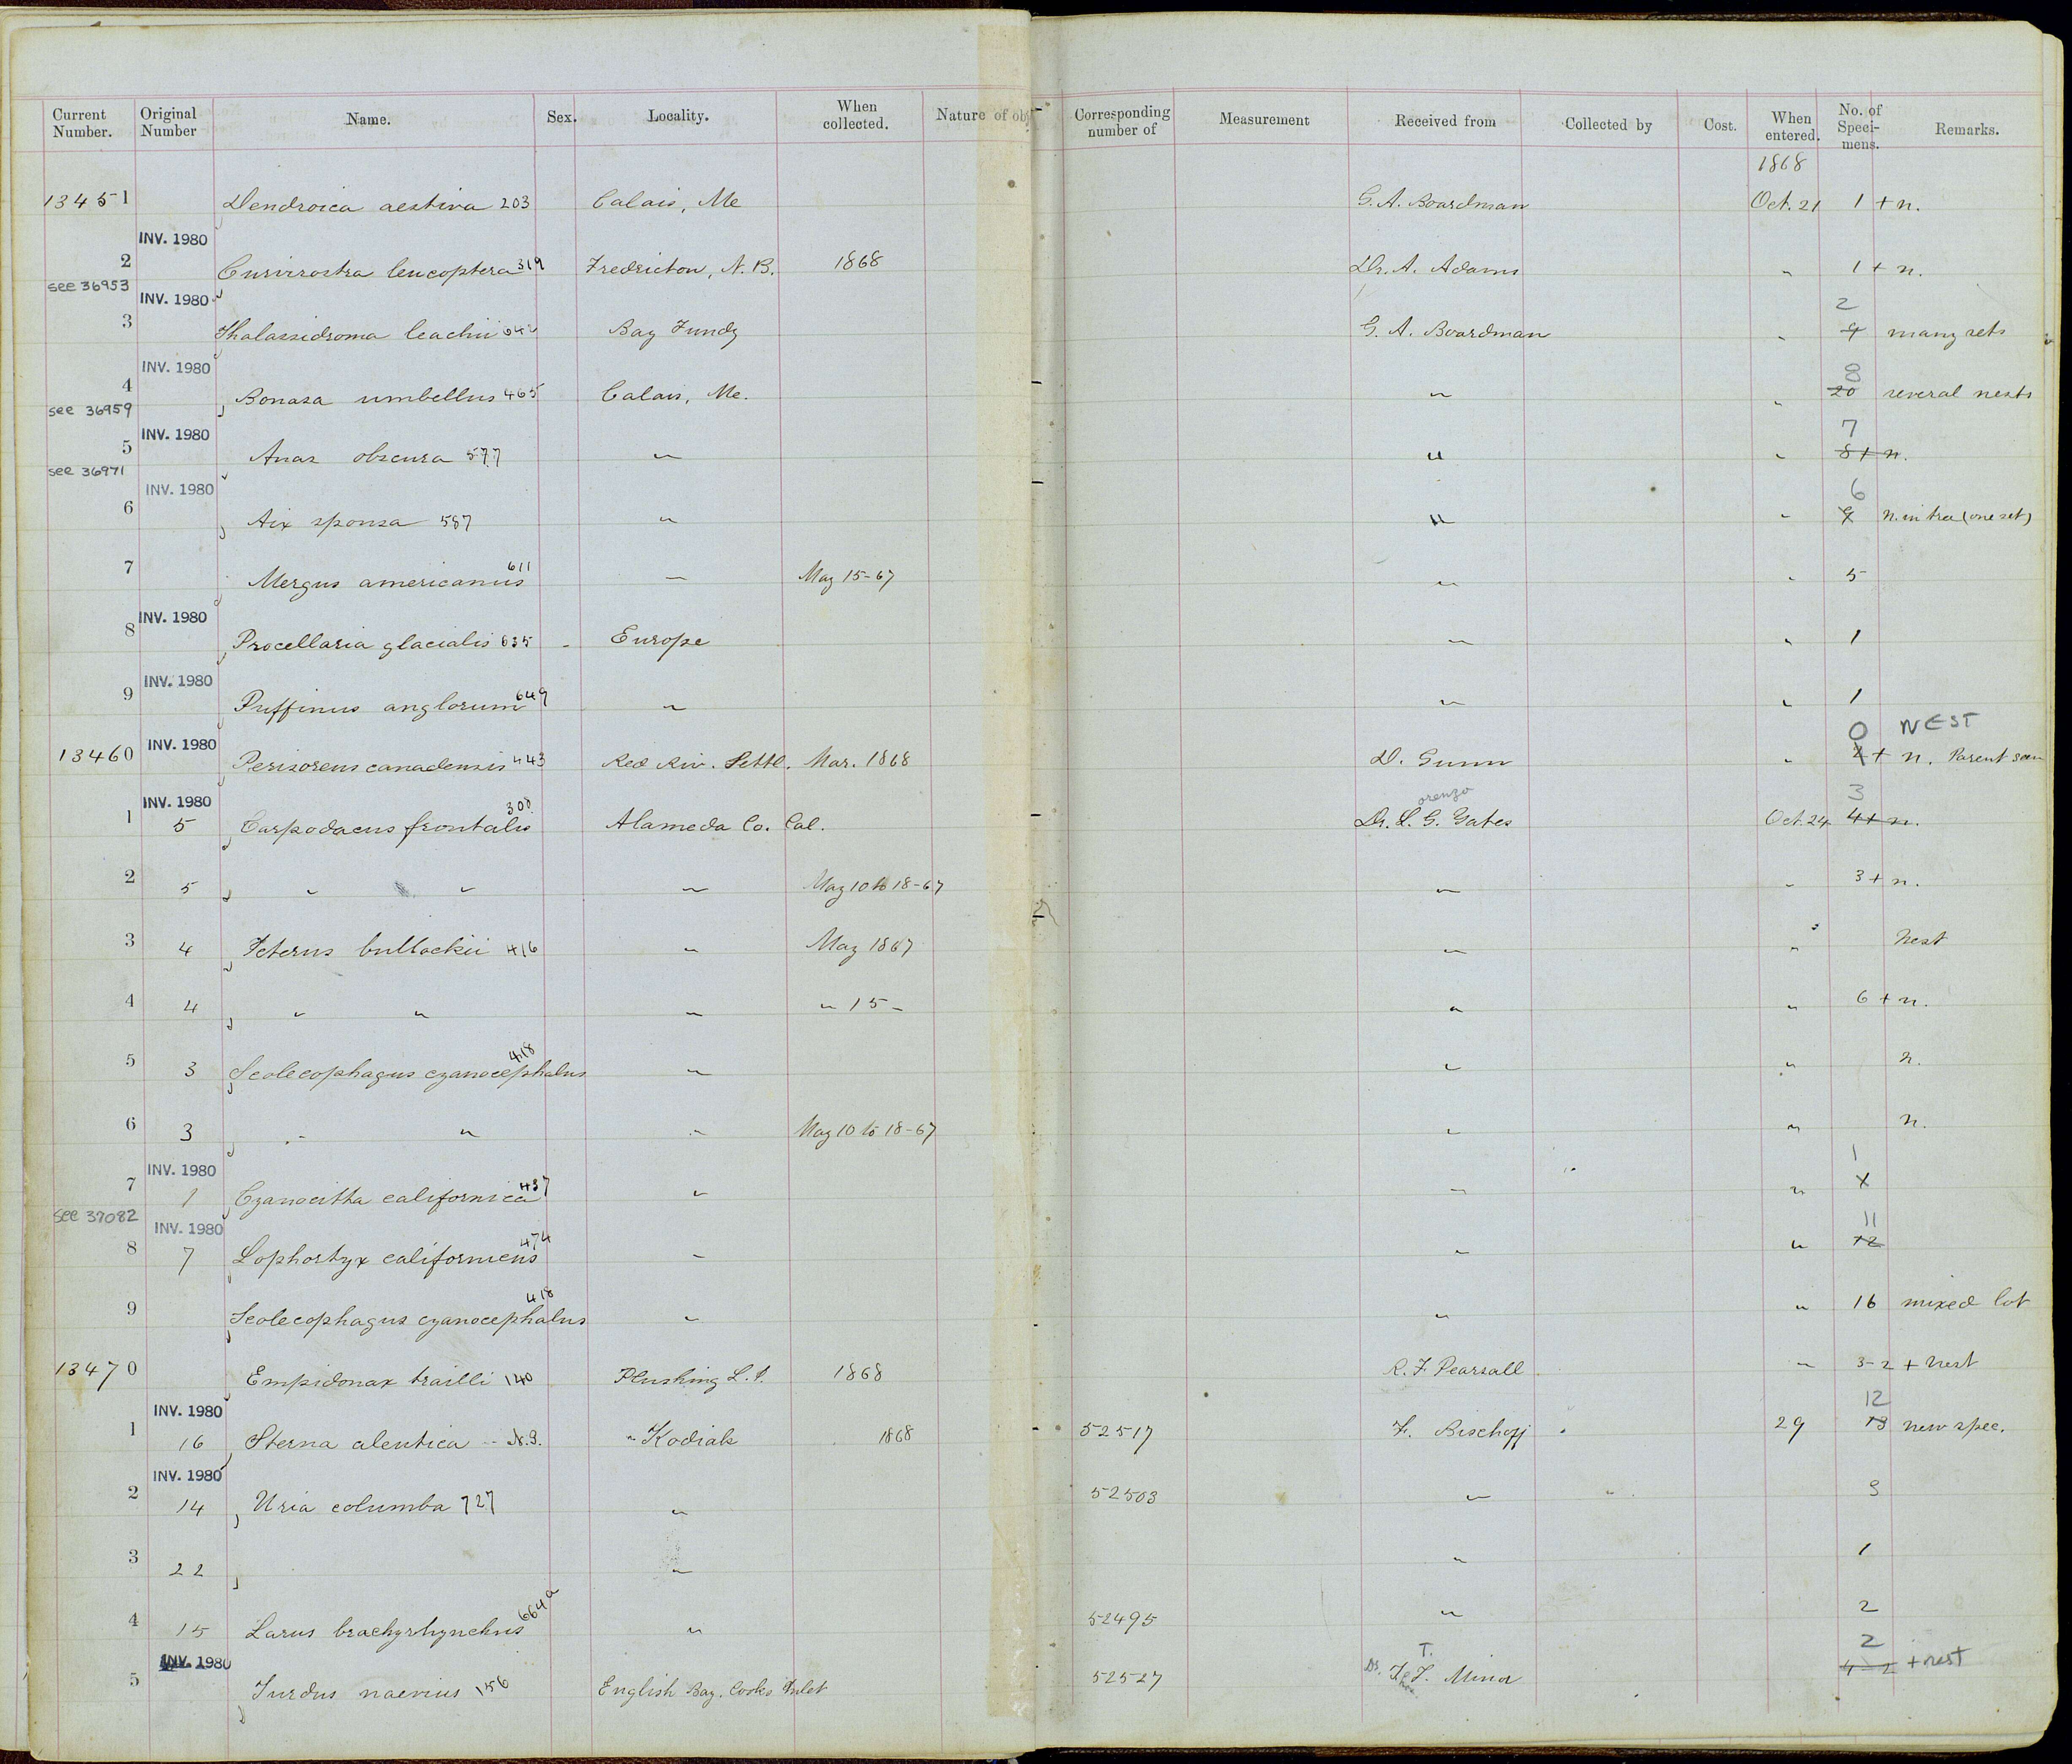 Current Number. Original Number Name. Sex. Locality. When collected. Nature of ob Corresponding number of Measurement Received from Collected by Cost. When entered. No. of Speci-mens. Remarks.
1868
13451 Dendroica aestiva 203 Calais, Me G. A. Boardman Oct. 21 1 + n.
INV. 1980
2 Curvirostra leucoptera 319 Fredricton, N. B. 1868 Dr. A. Adams " 1 + n.
see 36953
INV. 1980 2
3 Thalassidroma leachii 642 Bay Fundy G. A. Boardman " 4 many sets
INV. 1980 8
4 Bonasa umbellus 465 Calais, Me. " " 20 several nests
see 36959
INV. 1980 7
5 Anas obscura 577 " " " 8 + n.
see 36971
INV. 1980 6
6 Aix sponsa 587 " " " n. in tree (one set)
7 Mergus americanus 611 " May 15-67 " " 5
INV. 1980
8 Procellaria glacialis 635 Europe " " 1
INV. 1980
9 Puffinus anglorum 649 " " " 1
INV. 1980 0 NEST
13460 Perisoreus canadensis 443 Red Riv. Settl. Mar. 1868 D. Gunn " + n. Parent seen
INV. 1980 orenzo 3
1 5 Carpodacus frontalis 308 Alameda Co. Cal. Dr. L. G. Yates Oct. 24 4 + n.
2 5 " " " May 10 to 18-67 " " 3 + n.
3 4 Icterus bullockii 416 " May 1867 " " Nest
4 4 " " " " 15 " " " 6 + n.
5 3 Scolecophagus cyanocephalus 418 " " " n.
6 3 " " " May 10 to 18-67 " " n.
INV. 1980 1
7 1 Cyanocitta californica 437 " " "
see 37082
INV. 1980 11
8 7 Lophortyx californicus 474 " " " 12
9 Scolecophagus cyanocephalus 418 " " " 16 mixed lot
13470 Empidonax trailli 140 Flushing L. I. 1868 R. F. Pearsall " 3-2 + nest
INV. 1980 12
1 16 Sterna aleutica - N. S. " Kodiak 1868 52517 F. Bischoff 29 13 new spec.
INV. 1980
2 14 Uria columba 727 " 52503 " " 3
3 22 " " 1
4 15 Larus brachyrhynchus 664a " 52495 " 2
INV. 1980 T. 2
5 Turdus naevius 156 English Bay, Cooks Inlet 52527 Dr. Minor 4-2 + nest